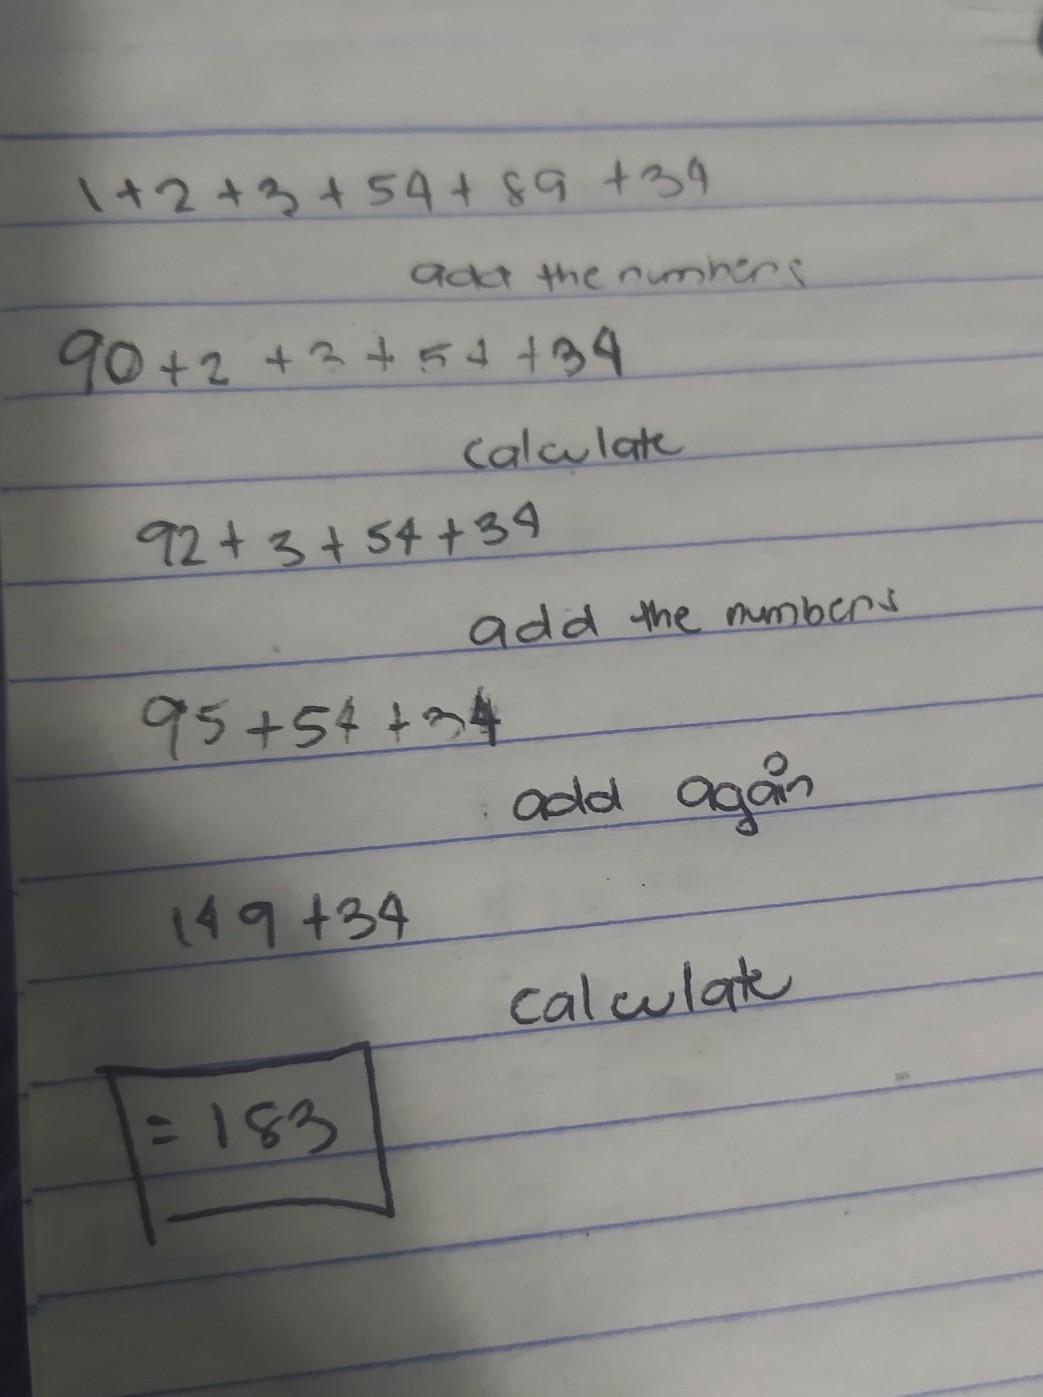 1+2+3+54+89+34
add the numbers
90+2+3+54+34
calculate
92+3+54+34
add the numbers
95+54+34
add again
149+34
calculate
=183